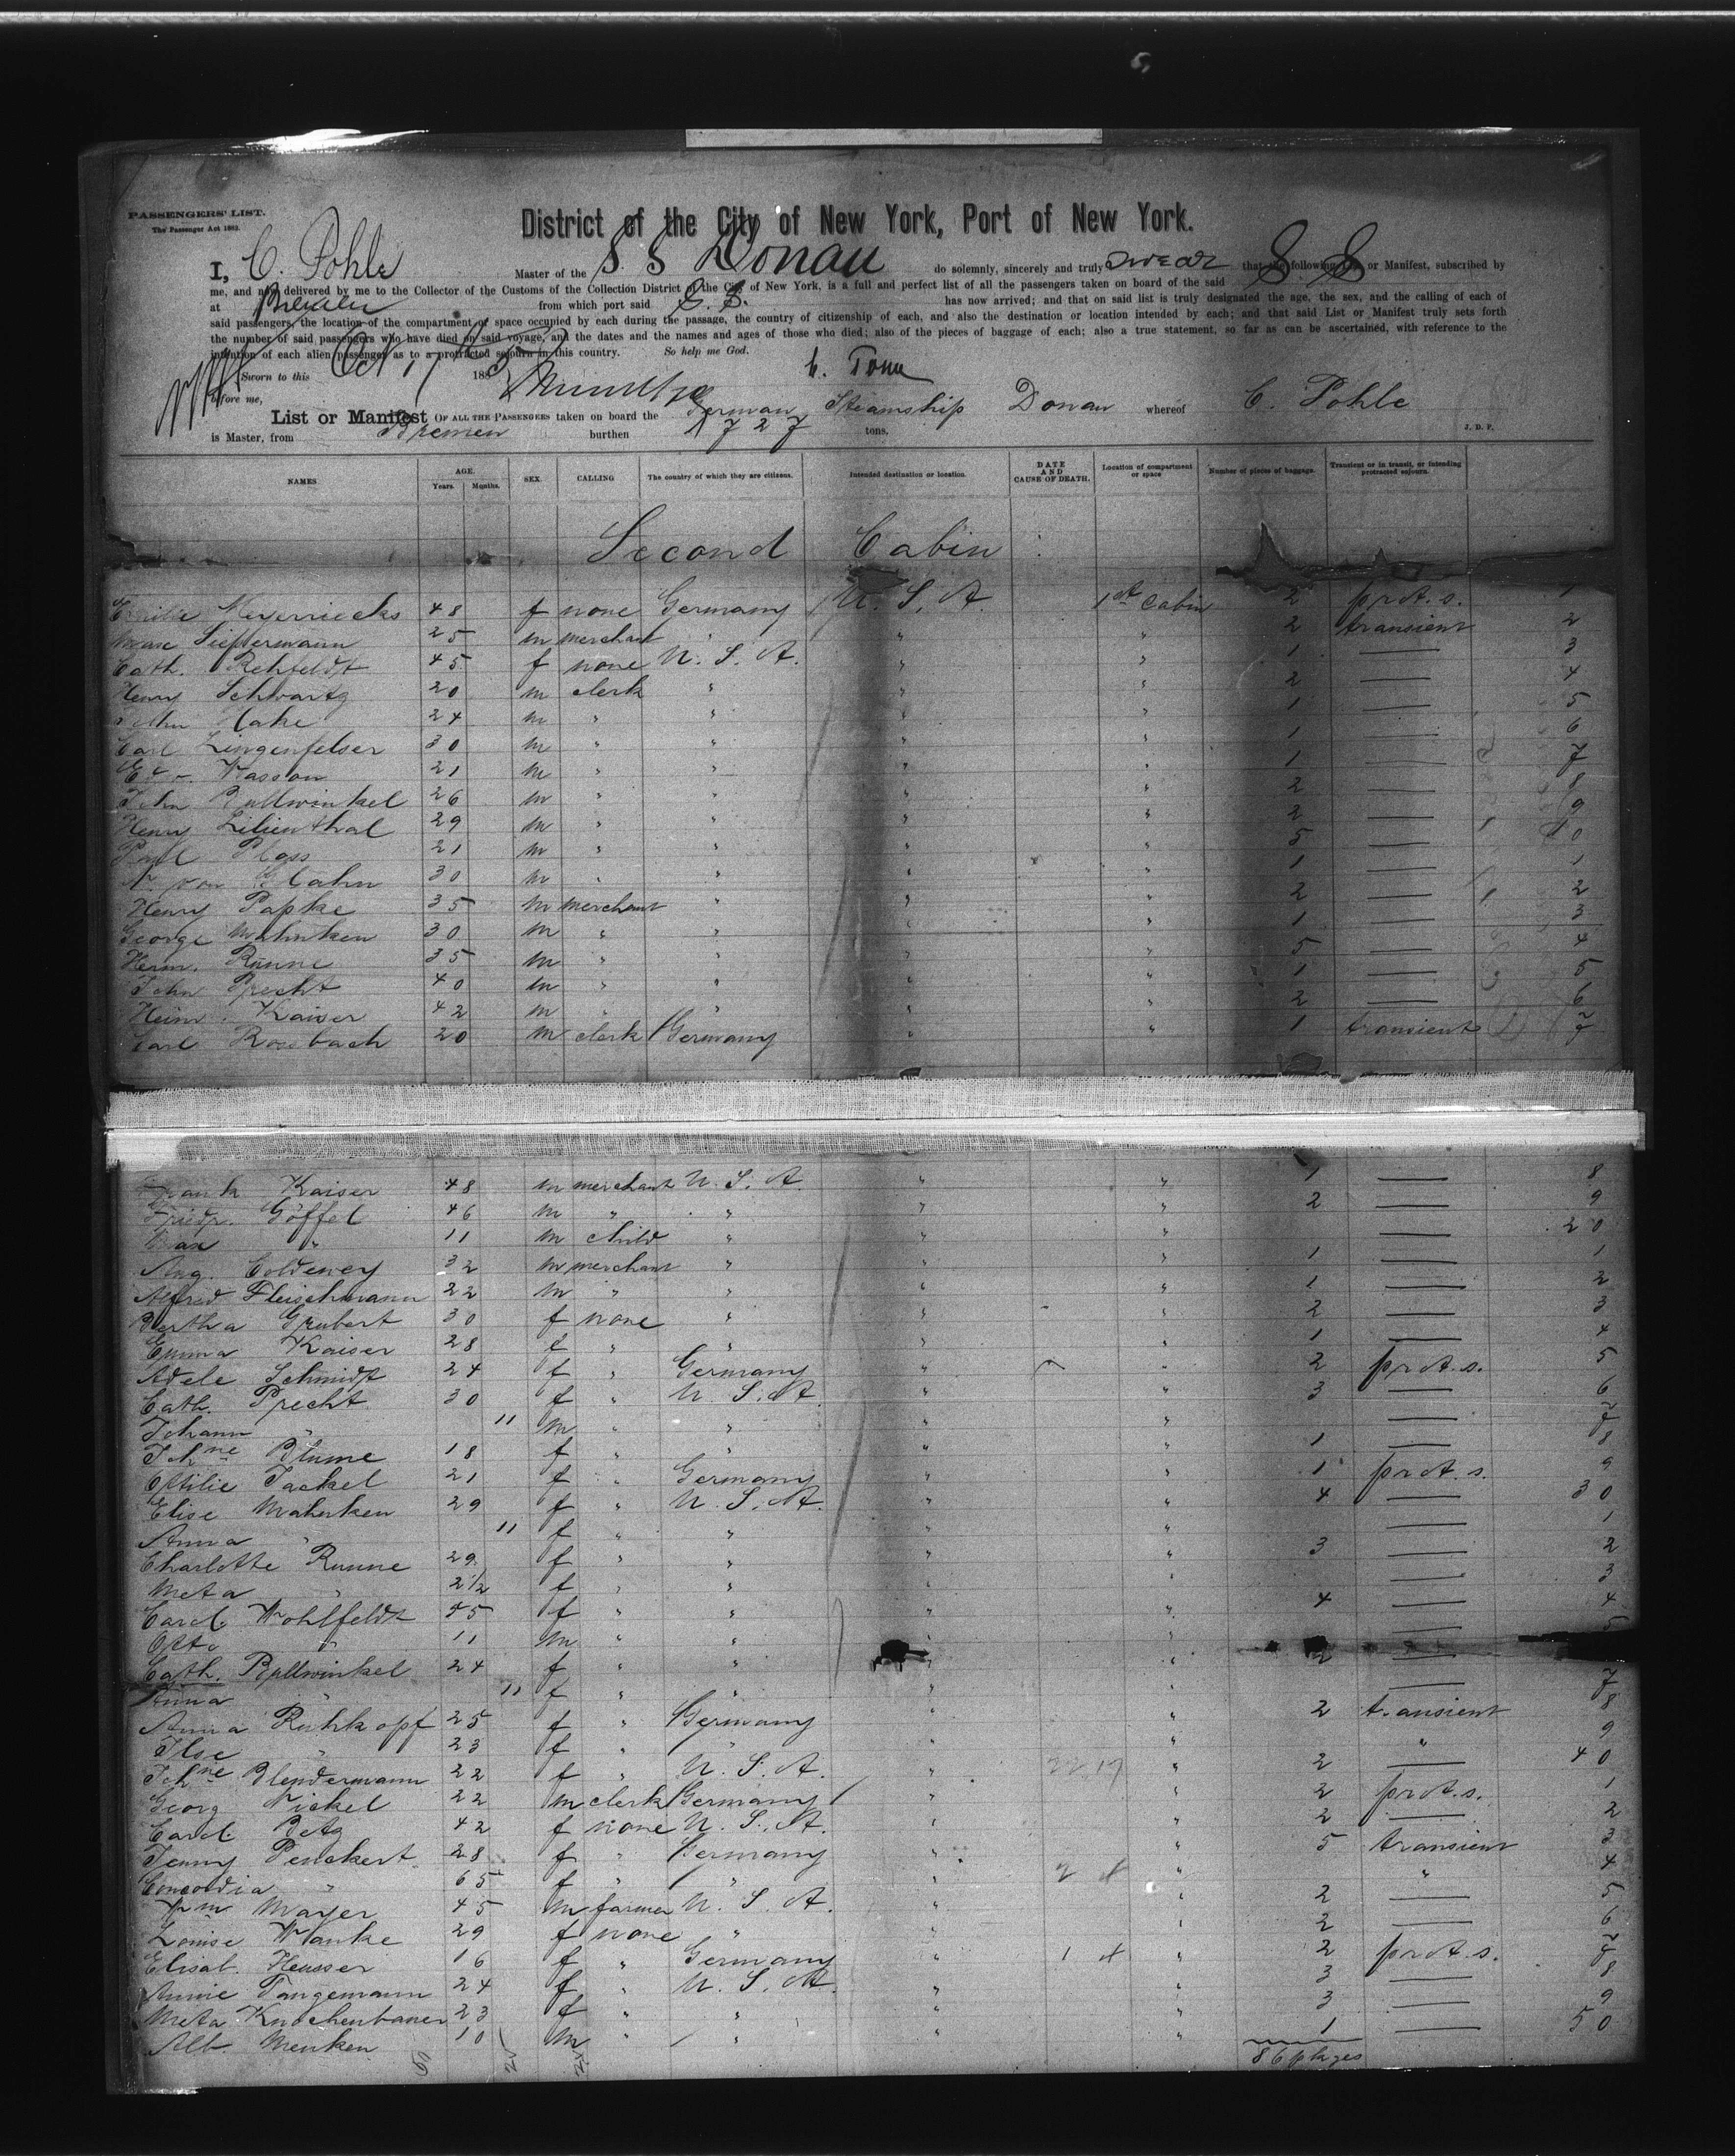 PASSENGERS' LIST.
The Passenger Act 1882.
District of the City of New York, Port of New York.
I, C. Pohle Master of the S S Donau do solemnly, sincerely and truly swear that the following List or Manifest, subscribed by
me, and now delivered by me to the Collector of the Customs of the Collection District of the City of New York, is a full and perfect list of all the passengers taken on board of the said S. S
at Bremen from which port said S. S. has now arrived; and that on said list is truly designated the age, the sex, and the calling of each of
said passengers, the location of the compartment or space occupied by each during the passage, the country of citizenship of each, and also the destination or location intended by each; and that said List or Manifest truly sets forth
the number of said passengers who have died on said voyage, and the dates and the names and ages of those who died; also of the pieces of baggage of each; also a true statement, so far as can be ascertained, with reference to the
intention of each alien passenger as to a protracted sojourn in this country. So help me God.
Sworn to this Oct 17 188
before me,
List or Manifest OF ALL THE PASSENGERS taken on board the German Steamship Donau whereof C. Pohle
is Master, from Bremen burthen tons. J. D. P.
NAMES AGE. Years. Months. SEX. CALLING The country of which they are citizens. Intended destination or location. DATE AND CAUSE OF DEATH. Location of compartment or space Number of pieces of baggage. Transient or in transit, or intending protracted sojourn.
Second Cabin :
Meyerriecks 48 f none Germany U. S. A. 1st Cabin 2 prot. s. 1
Max 25 m merchant " " " 2 transient 2
Cath. Rehfeldt 45 f none U. S. A. " " 1 — 3
Henry Schwartz 20 m clerk " " " 2 — 4
John Hake 24 m " " " " 1 — 5
Carl Lingenfelser 30 m " " " " 1 — 6
Wasson 21 m " " " " 1 — 7
John Bullwinkel 26 m " " " " 2 — 8
Henry Lilienthal 29 m " " " " 2 — 9
Paul Plass 21 m " " " " 5 — 10
N. von Glahn 30 m " " " " 1 — 1
Henry Papke 35 m merchant " " " 2 — 2
George Mahnken 30 m " " " " 1 — 3
Herm. Runne 35 m " " " " 5 — 4
John Precht 40 m " " " " 1 — 5
Heinr. Kaiser 42 m " " " " 2 — 6
Carl Rossbach 20 m clerk Germany " " 1 transient 7
Frank Kaiser 48 m merchant U. S. A. " " 1 — 8
Friedr. Göffel 46 m " " " " 2 — 9
Max " 11 m child " " " — 20
Aug. Coldewey 32 m merchant " " " 1 — 1
Alfred Fleischmann 22 m " " " " 1 — 2
Bertha Grubert 30 f none " " " 2 — 3
Emma Kaiser 28 f " " " " 1 — 4
Adele Schmidt 24 f " Germany " " 2 prot. s. 5
Cath. Precht 30 f " U. S. A. " " 3 — 6
Johann " 11 m " " " " — 7
Johne Blume 18 f " " " " 1 — 8
Ottilie Jackel 21 f " Germany " " 1 prot. s. 9
Elise Mahnken 29 f " U. S. A. " " 4 — 30
Anna " 11 f " " " " — 1
Charlotte Runne 29 f " " " " 3 — 2
Meta " 2 1/2 f " " " " — 3
Carol. Wohlfeldt 45 f " " " " 4 — 4
Otto " 11 m " " " " — 5
Cath. Bullwinkel 24 f " " " " 2 —
Anna " 11 f " " " " — 7
Anna Ruhkopf 25 f " Germany " " 2 transient 8
Ilse " 23 f " " " " " 9
Johne Blendermann 22 f " U. S. A. " " 2 — 40
Georg Nickel 22 m clerk Germany " " 2 prot. s. 1
Carol. Betz 42 f none U. S. A. " " 2 — 2
Jenny Penckert 28 f " Germany " " 5 transient 3
Concordia " 65 f " " " " " 4
Wm Mayer 45 m farmer U. S. A. " " 2 — 5
Louise Wanke 29 f none " " " 2 — 6
Elisab. Heusser 16 f " Germany " " 2 prot. s. 7
Annie Tangemann 24 f " U. S. A. " " 3 — 8
Meta Knochenhauer 23 f " " " " 3 — 9
Alb. Menken 10 m " " " " 1 — 50
86 pkges